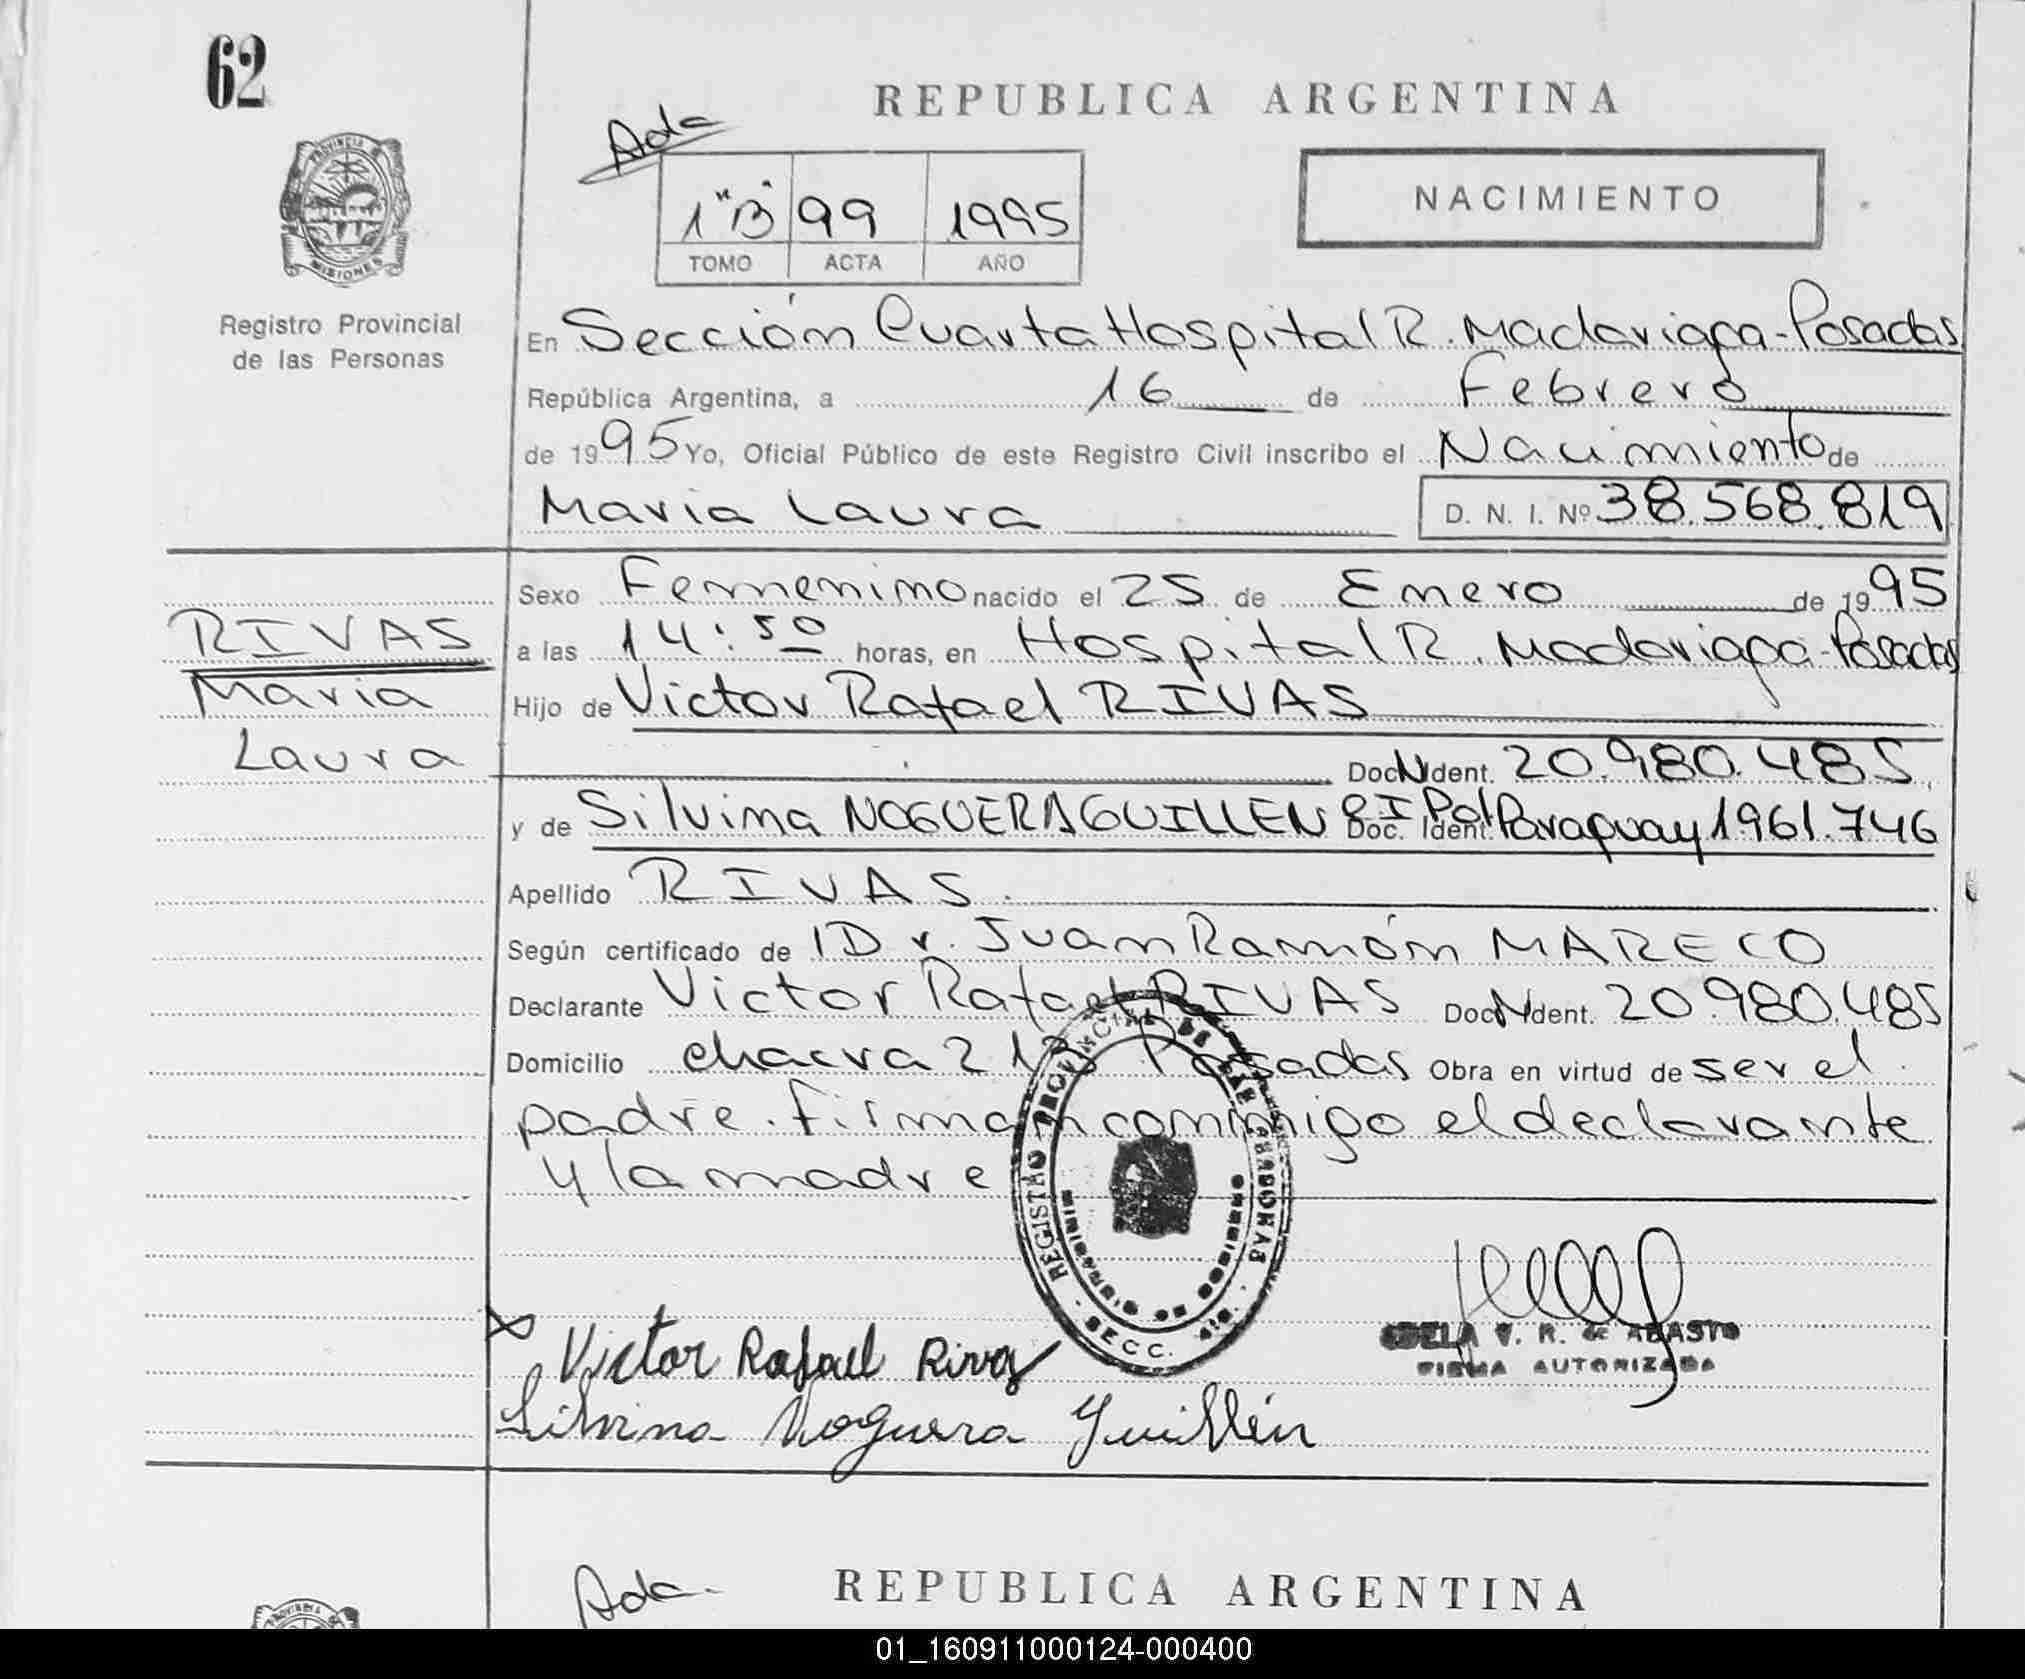 62
REPUBLICA ARGENTINA
Ada
NACIMIENTO
1"B" 99 1995
TOMO ACTA AÑO
PROVINCIA DE
MISIONES
Registro Provincial
de las Personas
En Sección Cuarta Hospital R. Madariaga-Posadas
República Argentina, a 16 de Febrero
de 1995 Yo, Oficial Público de este Registro Civil inscribo el Nacimiento de
Maria Laura D. N. I. Nº 38.568.819
Sexo Femenino nacido el 25 de Enero de 1995
RIVAS
a las 14:50 horas, en Hospital R. Madariaga-Posadas
Maria
Hijo de Victor Rafael RIVAS
Laura
Doc N Ident. 20.980.485
y de Silvina NOGUERA GUILLEN Doc. Ident. C I Pol Paraguay 1961.746
Apellido RIVAS
Según certificado de Dr. Juan Ramón MARECO
Declarante Victor Rafael RIVAS Doc N Ident. 20.980.485
Domicilio chacra 213 Posadas Obra en virtud de ser el
padre. Firman conmigo el declarante
y la madre
REGISTRO PROVINCIAL DE LAS PERSONAS
SECC. 4ta.
V. R. de ABASTO
FIRMA AUTORIZADA
Victor Rafael Rivas
Silvina Noguera Guillén
Ada
REPUBLICA ARGENTINA
01_160911000124-000400